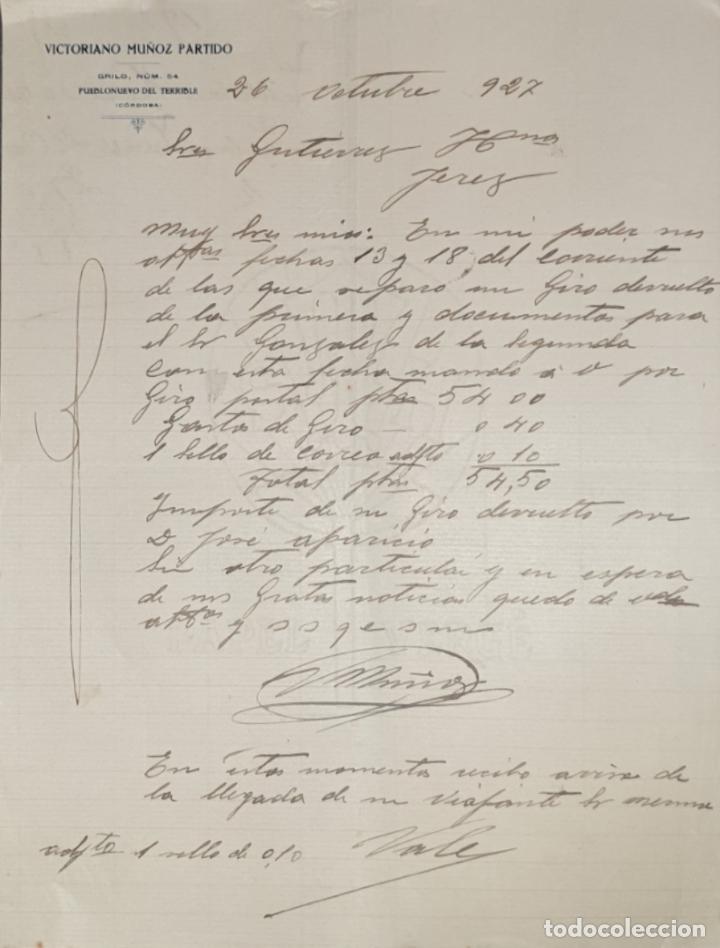 VICTORIANO MUÑOZ PARTIDO
GRILO, NÚM. 54
PUEBLONUEVO DEL TERRIBLE
(CÓRDOBA)
26 Octubre 927
Sres Gutierrez Hnos
Jerez
Muy Sres mios: En mi poder sus
attas fechas 13 y 18 del corriente
de las que separo un Giro devuelto
de la primera y documentos para
el Sr Gonzalez de la segunda
Con esta fecha mando a V por
Giro postal ptas 54 00
Gastos de Giro — 0 40
1 sello de correo adjto 0 10
Total ptas 54,50
Importe de su Giro devuelto por
D José aparicio
Sin otro particular y en espera
de sus Gratas noticias quedo de
atto y s s q e s m
V Muñoz
En estos momentos recibo aviso de
la llegada de su Viajante Sr
adjto 1 sello de 0,10 Vale
todocoleccion